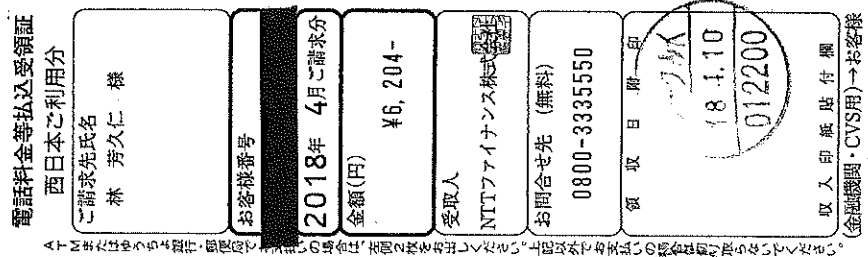 電話料金等払込受領証
西日本ご利用分
ご請求先氏名
林 芳久仁 様
お客様番号
2018年 4月ご請求分
金額(円)
¥6,204-
受取人
NTTファイナンス株式会社
お問合せ先 (無料)
0800-3335550
領収日附印
18.4.10
012200
収入印紙貼付欄
(金融機関・CVS用)→お客様
ATMまたはゆうちょ銀行・郵便局でお支払いの場合は、左側2枚をお出しください。上記以外でお支払いの場合は切り取らないでください。